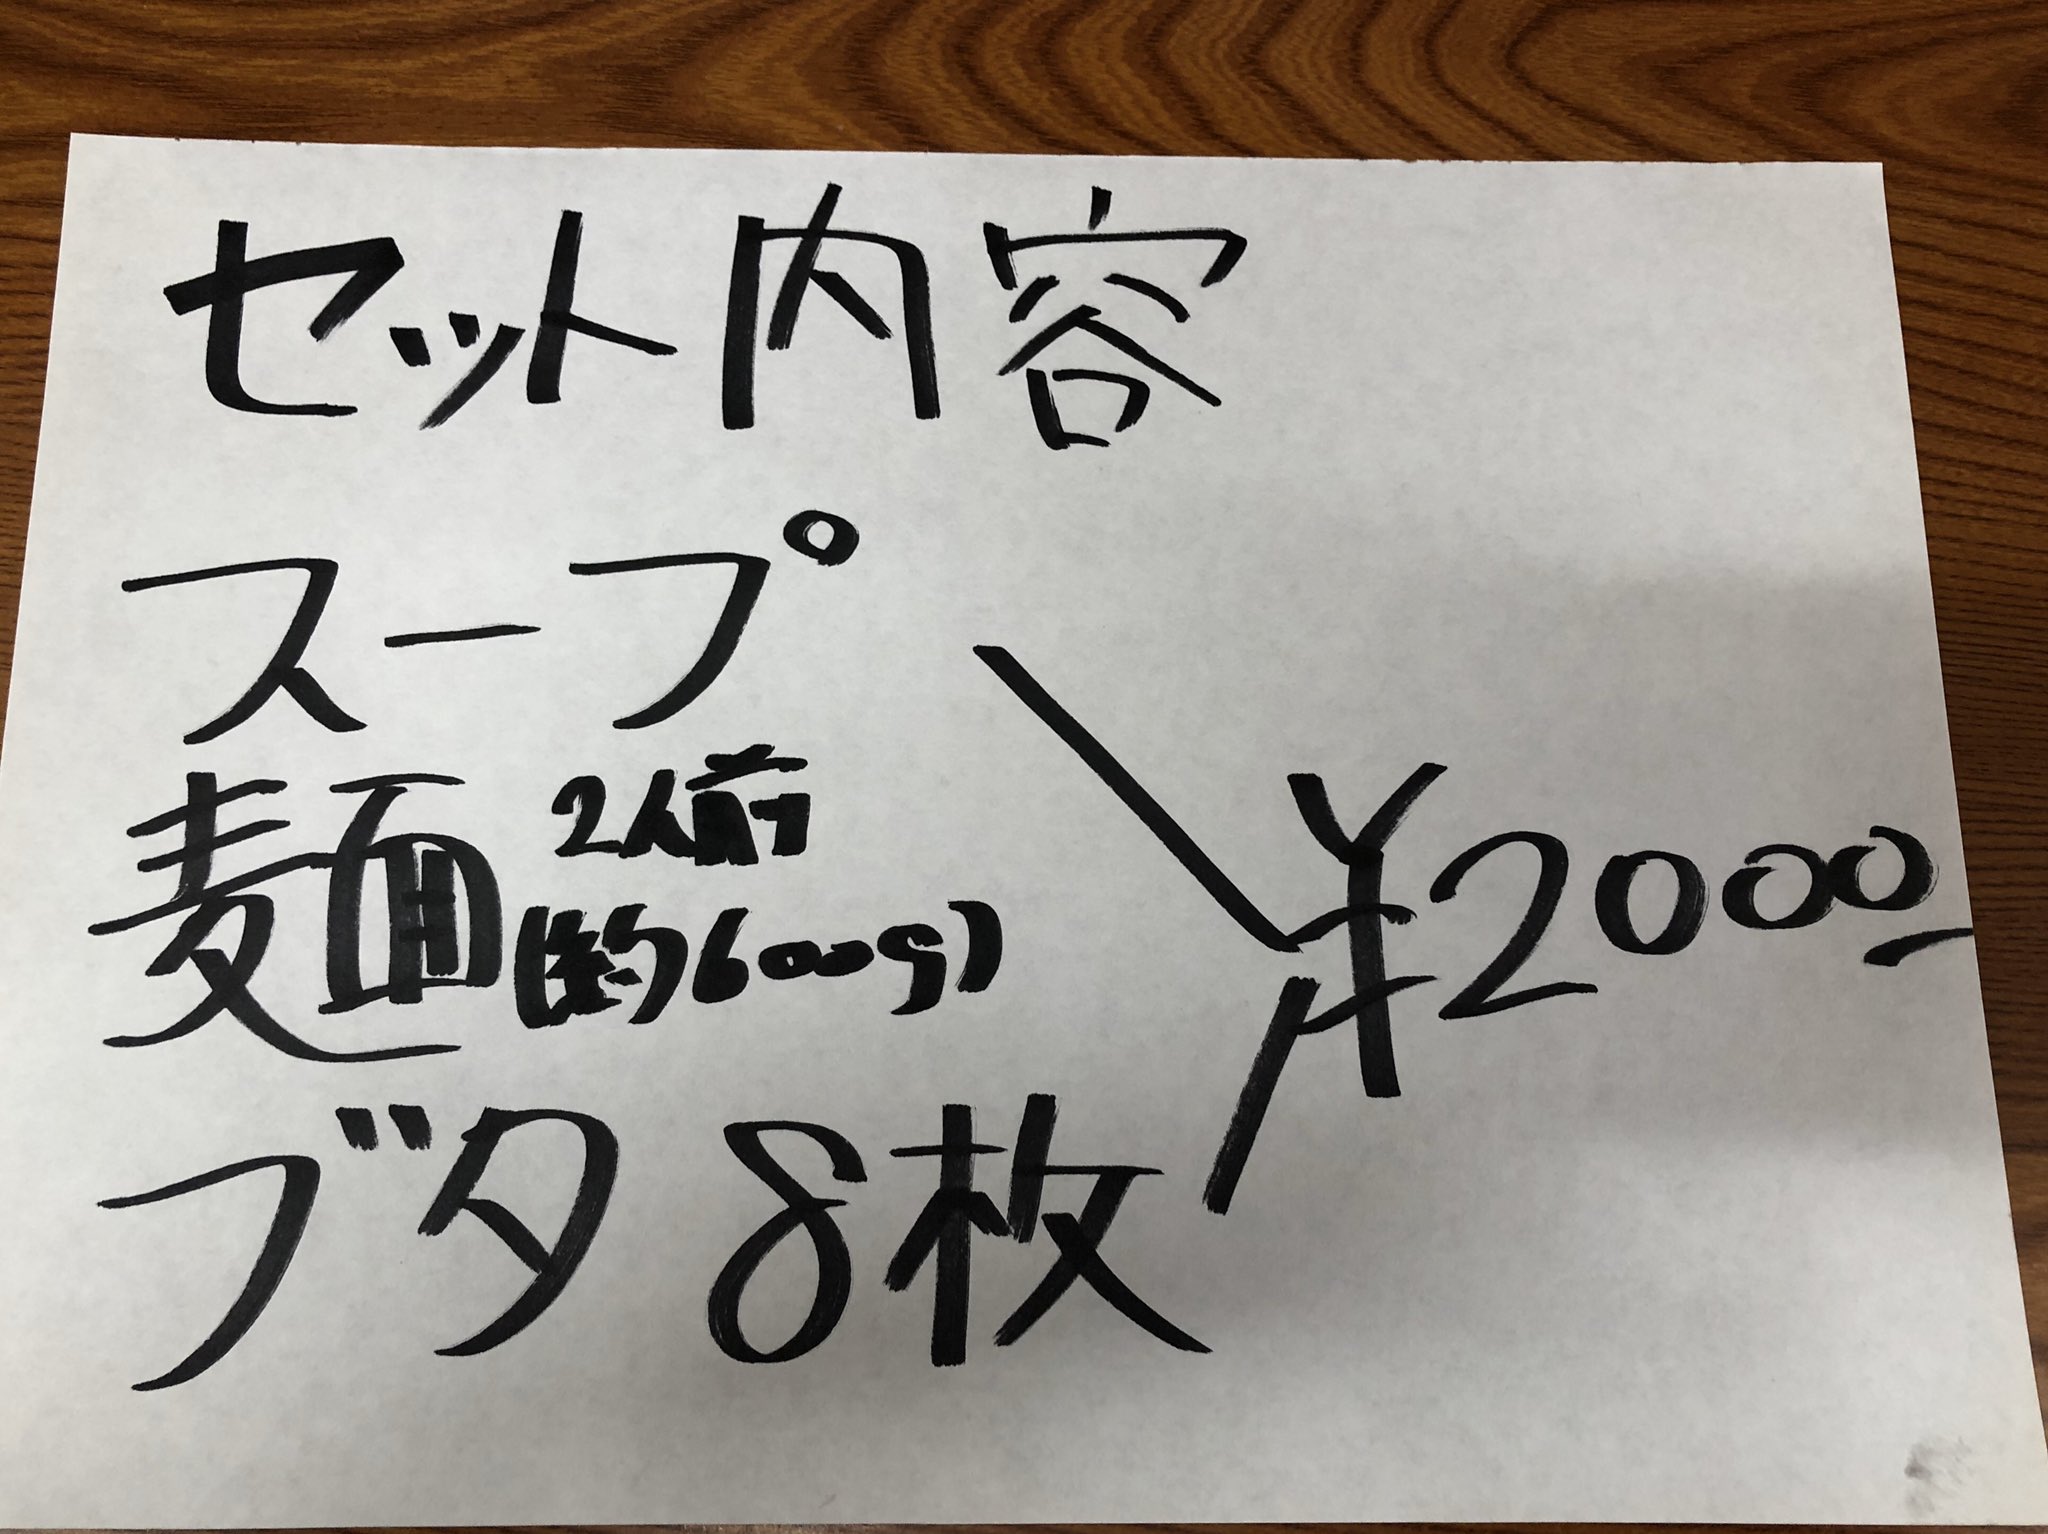 セット内容
スープ
麺 2人前
(約600g)
¥2000
ブタ 8枚